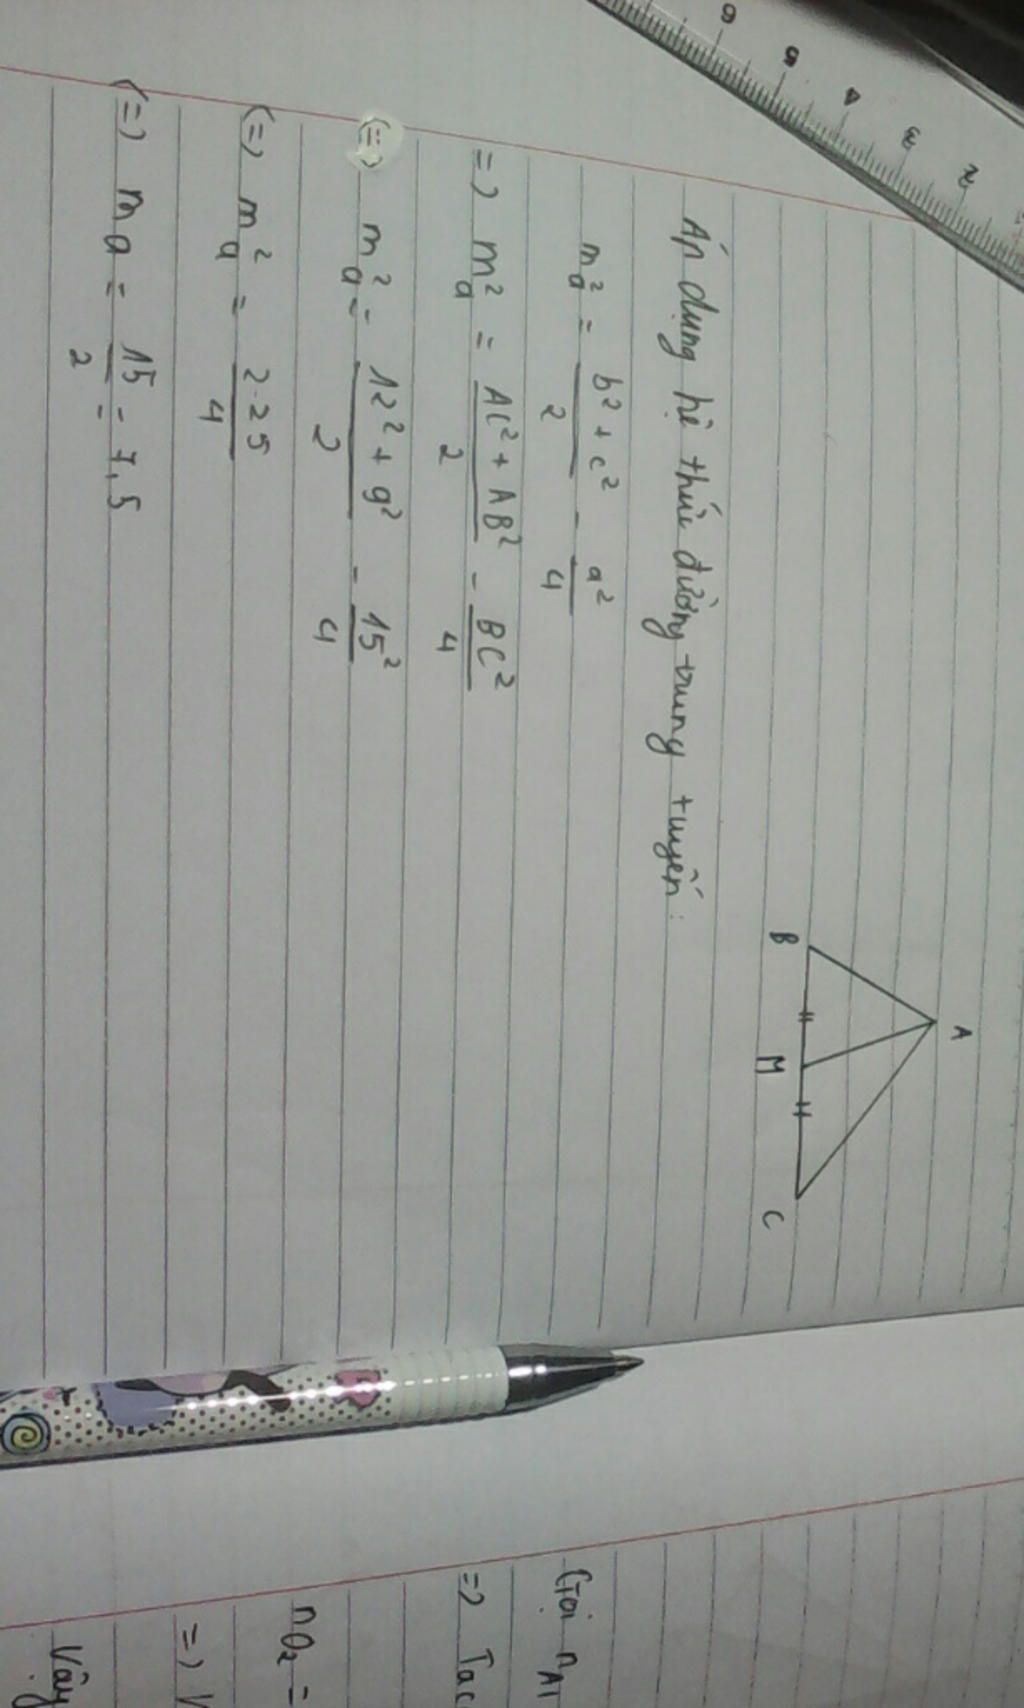 6 5 4 3 2
A
B M C
Áp dụng hệ thức đường trung tuyến:
m_a^2 = (b^2 + c^2)/2 - a^2/4
=> m_a^2 = (AC^2 + AB^2)/2 - BC^2/4
<=> m_a^2 = (12^2 + 9^2)/2 - 15^2/4
<=> m_a^2 = 225/4
<=> m_a = 15/2 = 7,5
Gọi n_Al
=> Ta c
nO_2 =
=> V
Vậy